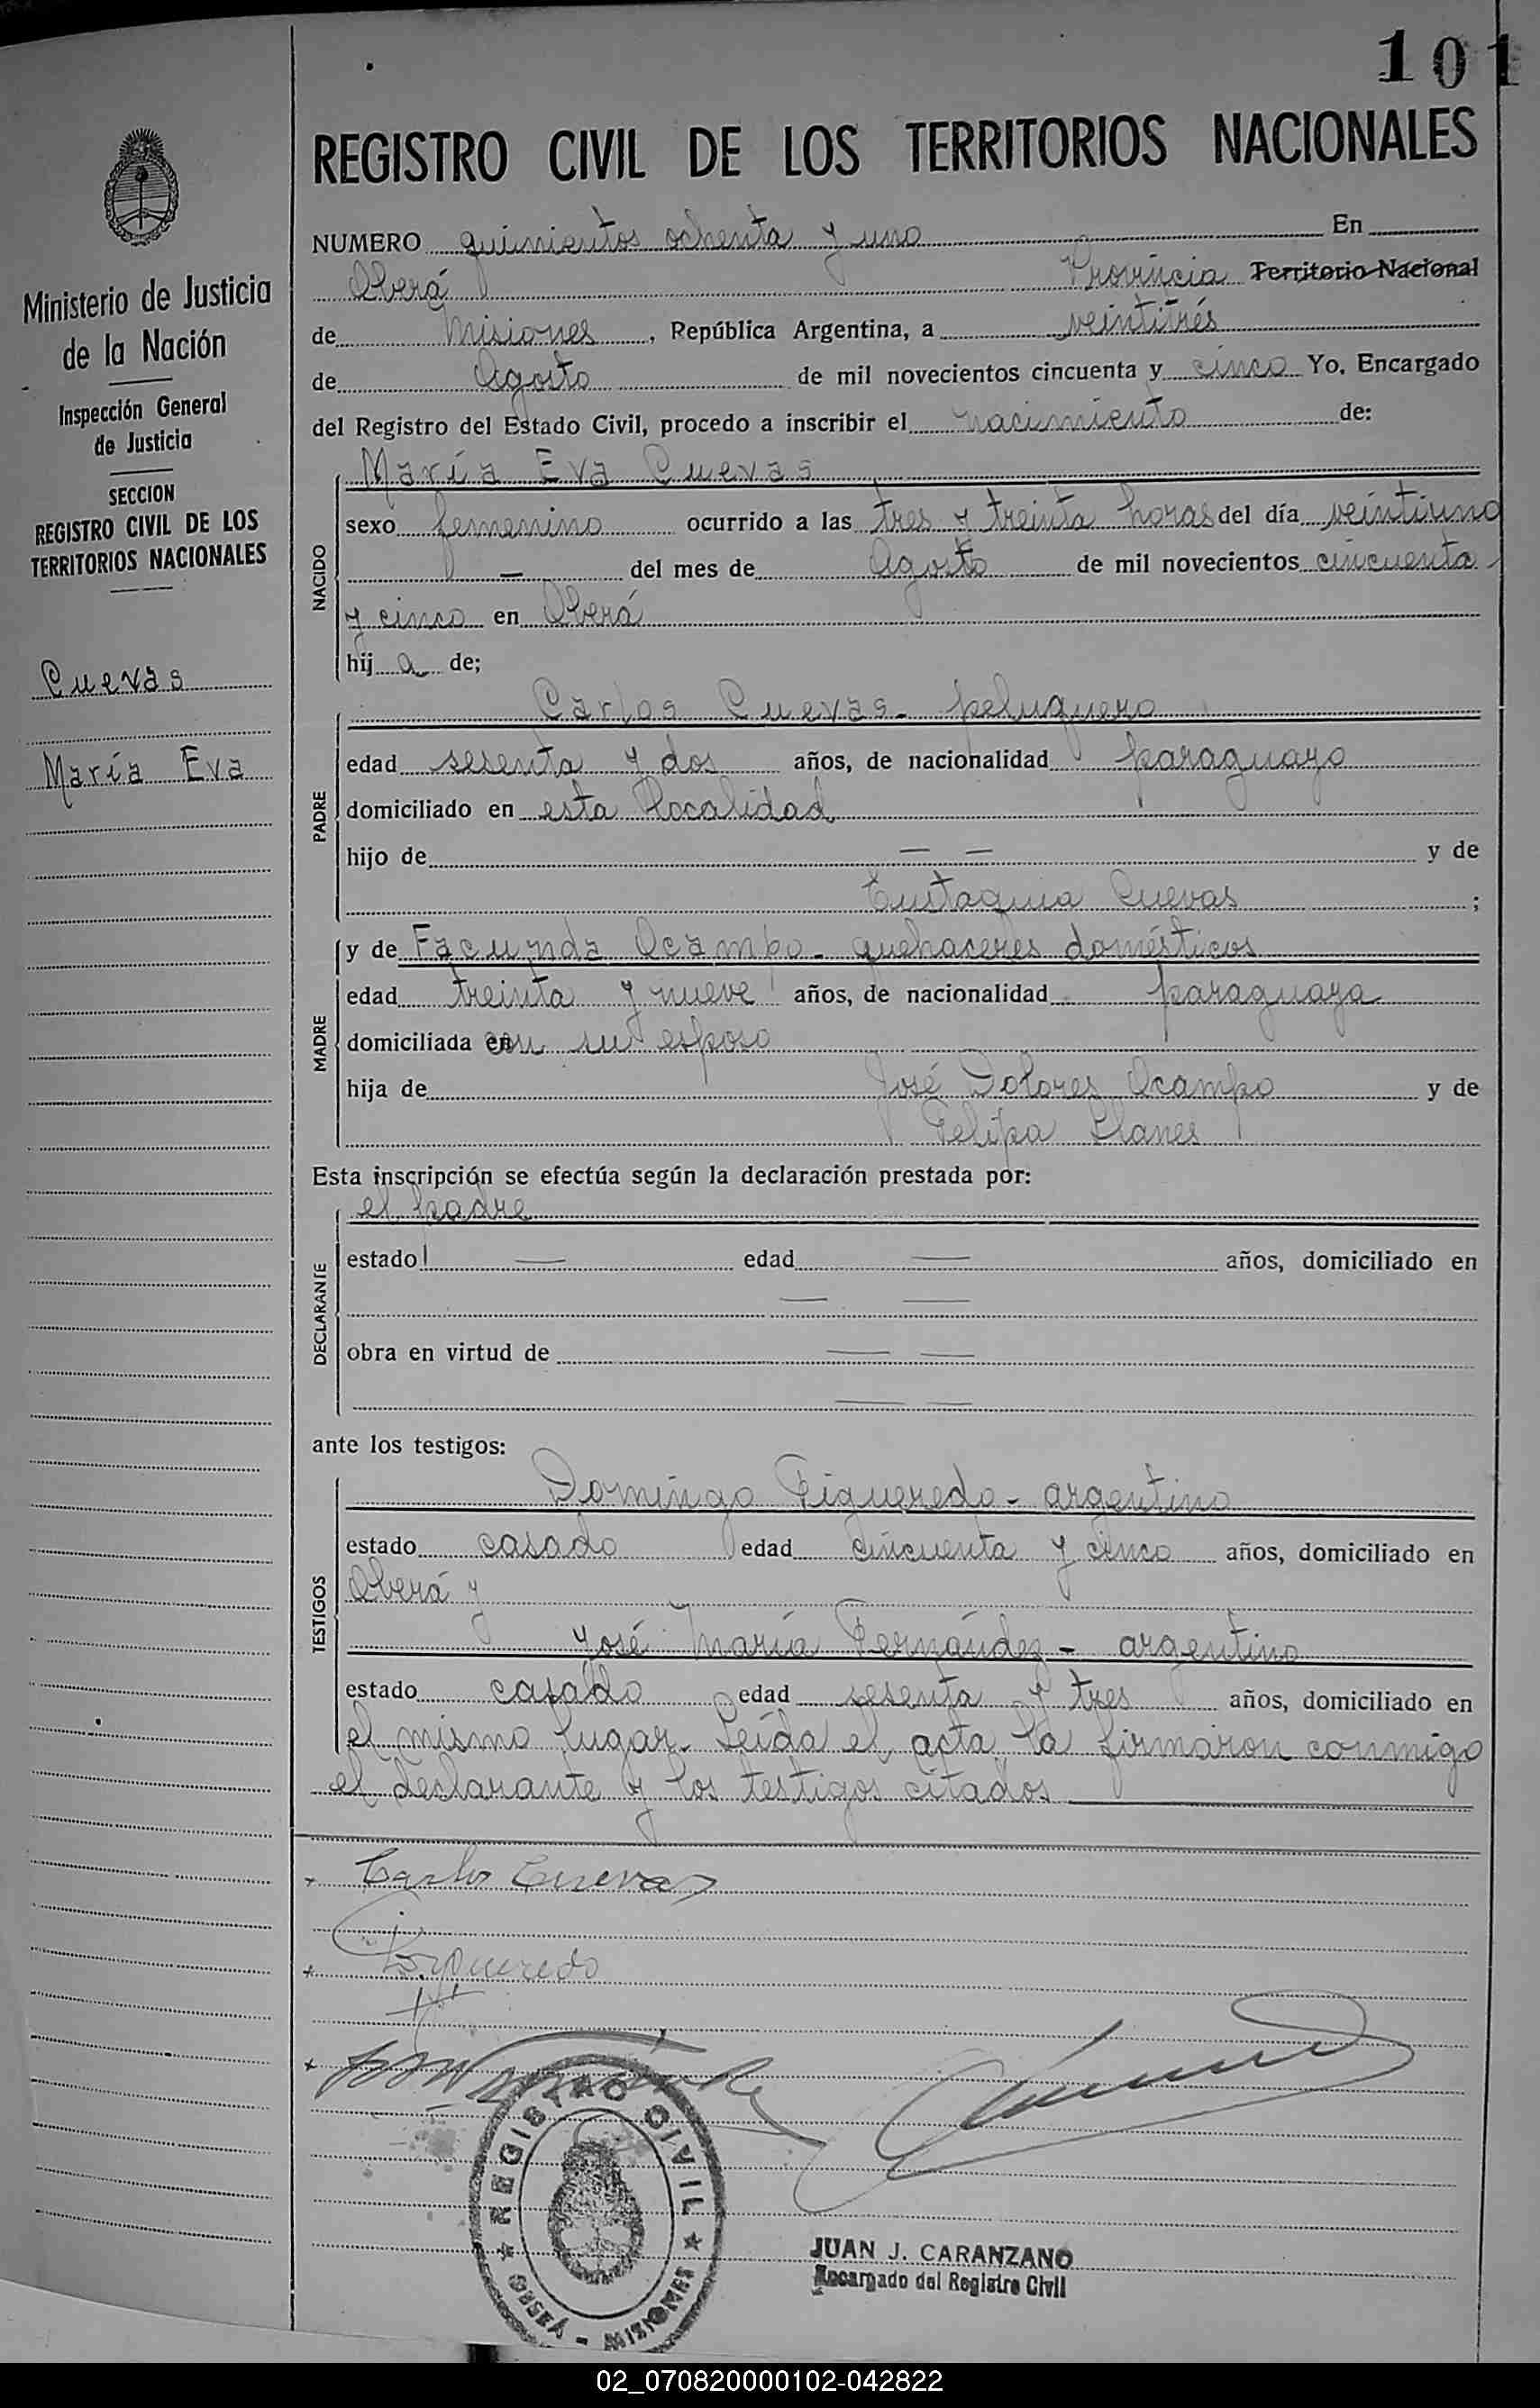 101
REGISTRO CIVIL DE LOS TERRITORIOS NACIONALES
Ministerio de Justicia
de la Nación
Inspección General
de Justicia
SECCION
REGISTRO CIVIL DE LOS
TERRITORIOS NACIONALES
Cuevas
María Eva
NUMERO quinientos ochenta y uno En
Oberá Provincia Territorio Nacional
de Misiones, República Argentina, a veintitrés
de Agosto de mil novecientos cincuenta y cinco Yo. Encargado
del Registro del Estado Civil, procedo a inscribir el nacimiento de:
NACIDO
María Eva Cuevas
sexo femenino ocurrido a las tres y treinta horas del día veintiuno
— del mes de Agosto de mil novecientos cincuenta
y cinco en Oberá
hij a de;
PADRE
Carlos Cuevas - peluquero
edad sesenta y dos años, de nacionalidad paraguayo
domiciliado en esta localidad
hijo de — — y de
Eustaquia Cuevas ;
MADRE
y de Facunda Ocampo - quehaceres domésticos
edad treinta y nueve años, de nacionalidad paraguaya
domiciliada con su esposo
hija de José Dolores Ocampo y de
Felipa Llanes
Esta inscripción se efectúa según la declaración prestada por:
DECLARANTE
el padre
estado — edad — años, domiciliado en
— —
obra en virtud de — —
— —
ante los testigos:
TESTIGOS
Domingo Figueredo - argentino
estado casado edad cincuenta y cinco años, domiciliado en
Oberá y
José María Fernández - argentino
estado casado edad sesenta y tres años, domiciliado en
el mismo lugar. Leída el acta la firmaron conmigo
el declarante y los testigos citados
Carlos Cuevas
Figueredo
REGISTRO CIVIL
OBERÁ - MISIONES
JUAN J. CARANZANO
Encargado del Registro Civil
02_070820000102-042822